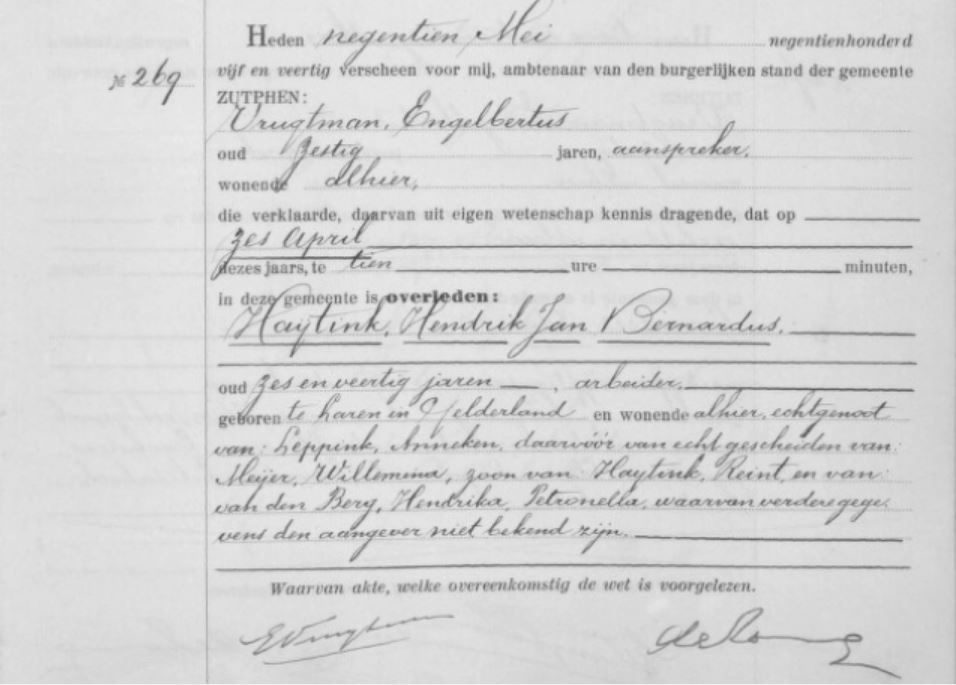 Heden negentien Mei negentienhonderd
№ 269 vijf en veertig verscheen voor mij, ambtenaar van den burgerlijken stand der gemeente
ZUTPHEN:
Vrugtman, Engelbertus
oud zestig jaren, aanspreker,
wonende alhier,
die verklaarde, daarvan uit eigen wetenschap kennis dragende, dat op
zes April
dezes jaars, te tien ure minuten,
in deze gemeente is overleden:
Haytink, Hendrik Jan Bernardus,
oud zes en veertig jaren, arbeider,
geboren te Laren in Gelderland en wonende alhier, echtgenoot
van: Leppink, Anneken, daarvóór van echt gescheiden van:
Meijer, Willemina, zoon van: Haytink, Reint, en van:
van den Berg, Hendrika, Petronella, waarvan verdere gege-
vens den aangever niet bekend zijn.
Waarvan akte, welke overeenkomstig de wet is voorgelezen.
EVrugtman